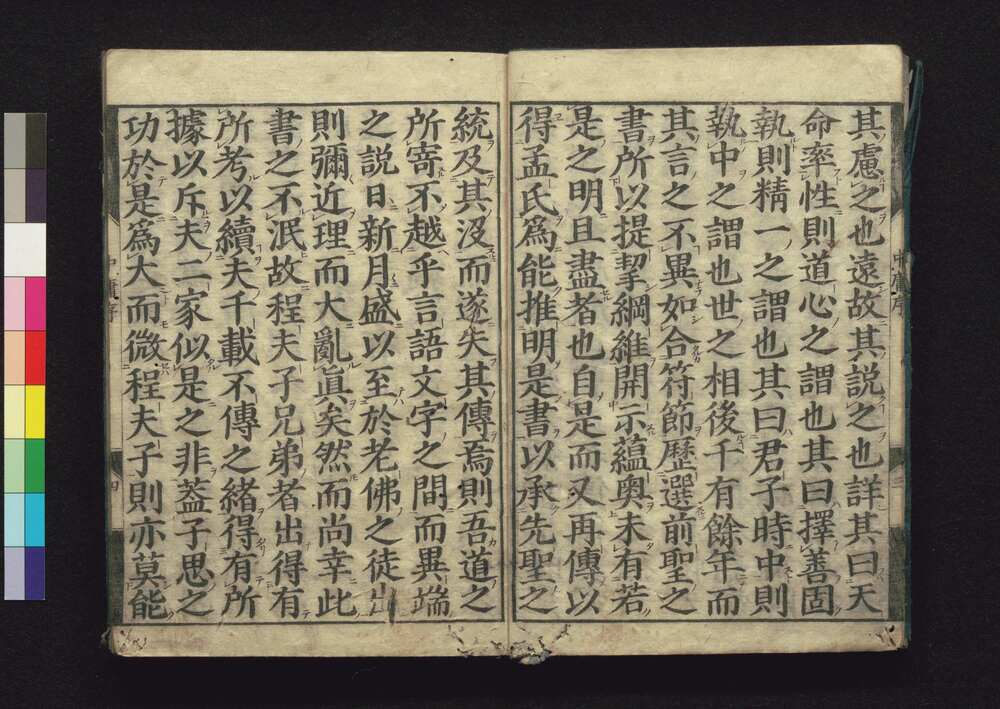 其慮之也遠故其説之也詳其曰天
命率性則道心之謂也其曰擇善固
執則精一之謂也其曰君子時中則
執中之謂也世之相後千有餘年而
其言之不異如合符節歷選前聖之
書所以提挈綱維開示蘊奥未有若
是之明且盡者也自是而又再傳以
得孟氏爲能推明是書以承先聖之
統及其没而遂失其傳焉則吾道之
所寄不越乎言語文字之間而異端
之説日新月盛以至於老佛之徒出
則彌近理而大亂眞矣然而尚幸此
書之不泯故程夫子兄弟者出得有
所考以續夫千載不傳之緒得有所
據以斥夫二家似是之非蓋子思之
功於是爲大而微程夫子則亦莫能
中庸序
四